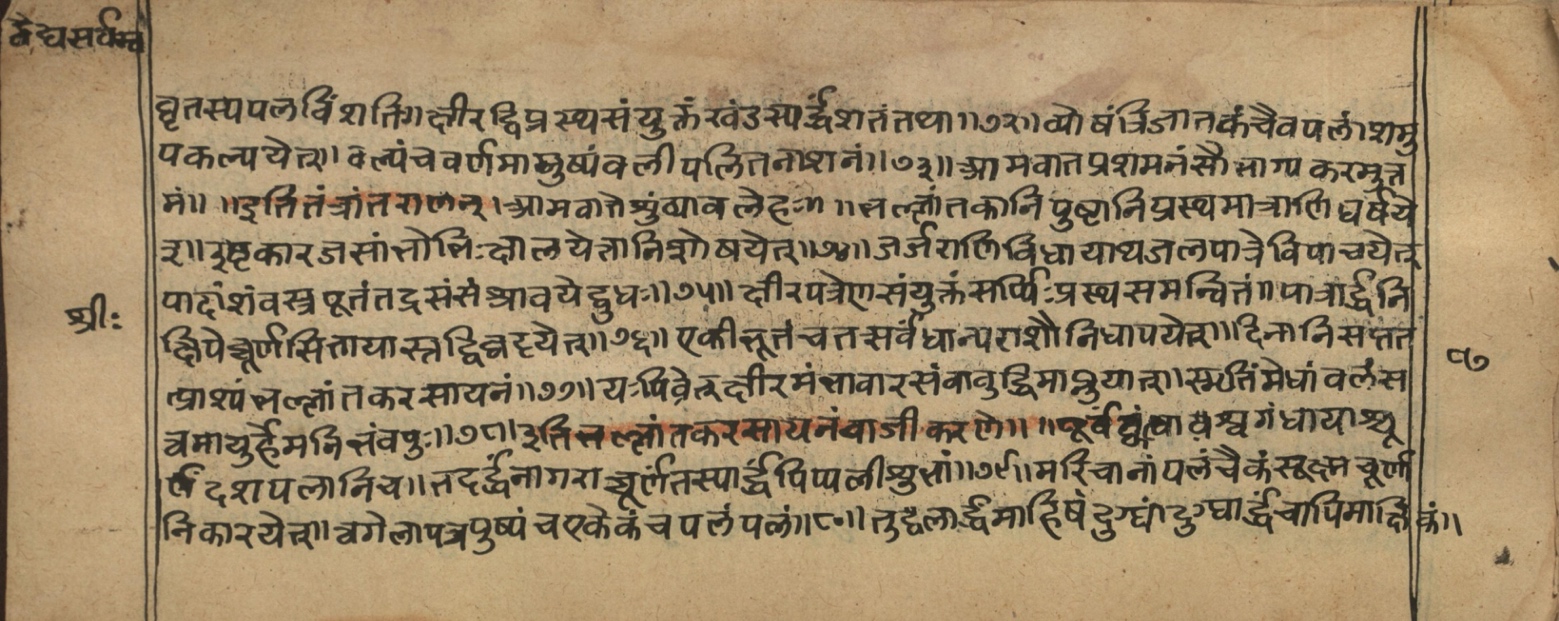 वैद्यसर्वस्व
घृतस्यपलविंशति॥क्षीरद्विप्रस्थसंयुक्तंखंडस्यर्द्धशतंतथा॥७२॥व्योषंत्रिजातकंचैवपलांशमु
पकल्पयेत्॥वल्यंचवर्णमायुष्यंवलीपलितनाशनं॥७३॥आमवातप्रशमनंसौभाग्यकरमुत्त
मं॥ ॥इतितंत्रांतरालेत्।आमवातेशुंठ्यावलेहः॥ ॥भल्लांतकानिपुष्टानिप्रस्थमात्राणिघर्षये
त्॥इष्टकारजसांत्तोभिःक्षालयेत्तानिशोषयेत्॥७४॥जर्जराणिविधायाथजलपात्रेविपाचयेत्
पादांशंवस्त्रपूतंतद्रसंसंश्रावयेद्बुधः॥७५॥क्षीरपत्रेणसंयुक्तंसर्प्पिःप्रस्थसमन्वितं॥पात्रार्द्धनि
श्रीः
क्षिपेच्चूर्णसितायास्तद्विघट्टयेत्॥७६॥एकीभूतंचतत्सर्वधान्यराशौनिधापयेत्॥दिनानिसप्तत
त्प्राश्यंभल्लांतकरसायनं॥७७॥यःपिवेत्क्षीरमंभावारसंवाबुद्धिमाप्नुयात्॥स्मृतिंमेधांवलंस
८७
त्वमायुर्हेमनिभंवपुः॥७८॥इतिभल्लांतकरसायनंवाजीकरणे॥ ॥पूर्वंश्वगंधायाश्चू
र्णंदशपलानिच॥तदर्द्धंनागराच्चूर्णंतस्यार्द्धंपिप्पलीश्रुभां॥७९॥मरिचानांपलंचैकंसूक्ष्मचूर्णा
निकारयेत्॥त्वगेलापत्रपुष्पंचएकेकंचपलंपलं॥८०॥तुद्वलार्द्धमाहिषंदुग्धंदुग्धार्द्धंचापिमाक्षिकं॥